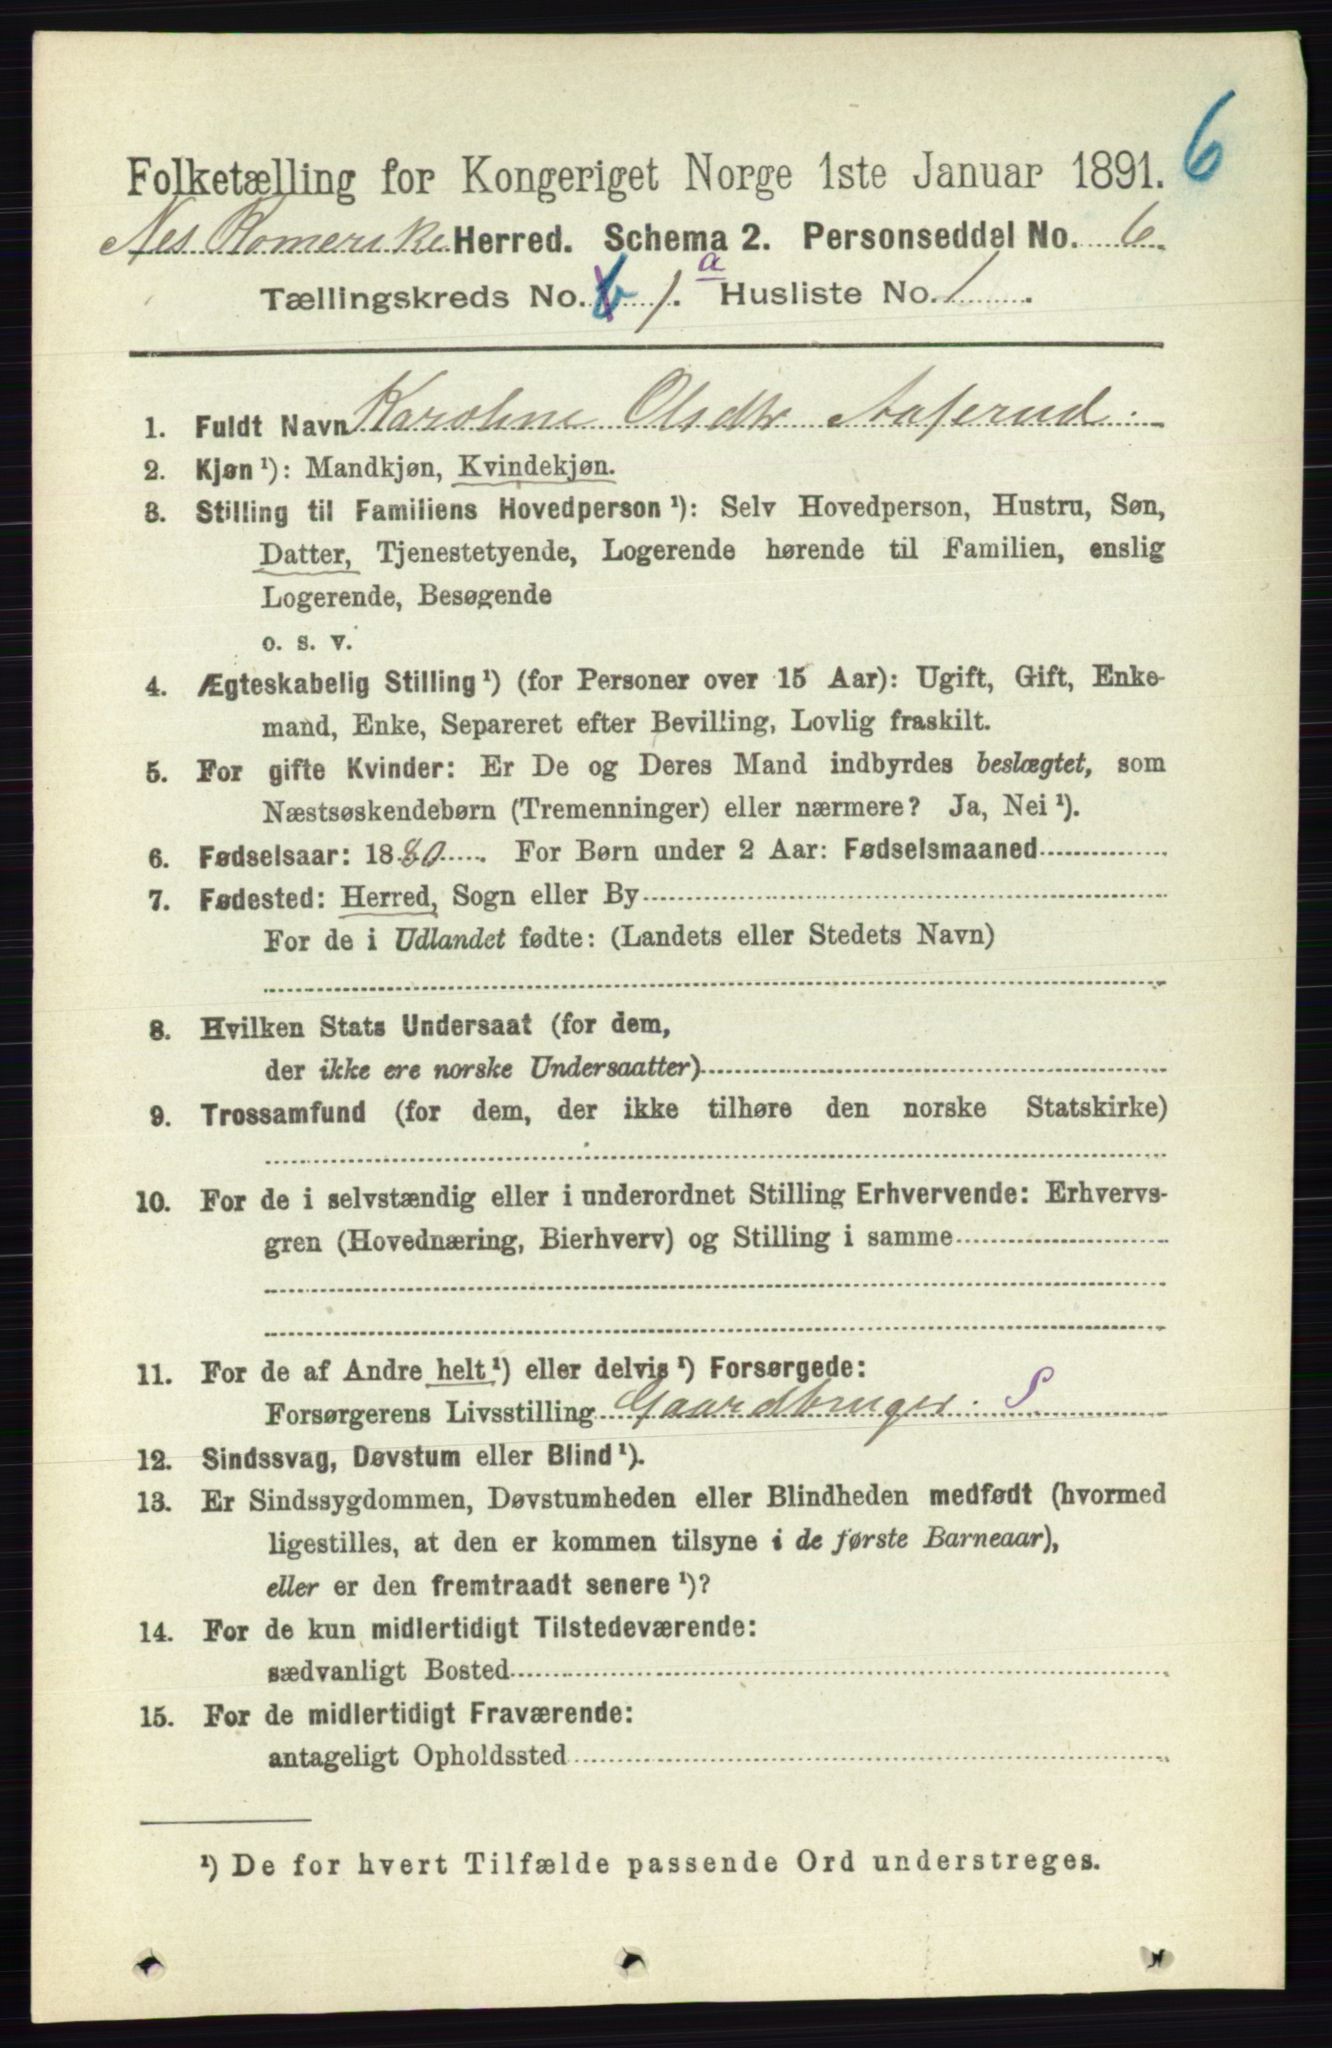 6
Folketælling for Kongeriget Norge 1ste Januar 1891.
Nes Romerike Herred. Schema 2. Personseddel No. 6.
Tællingskreds No. 6 1. a Husliste No. 1.
1. Fuldt Navn Karoline Olsdtr Aaserud.
2. Kjøn ¹): Mandkjøn, Kvindekjøn.
3. Stilling til Familiens Hovedperson ¹): Selv Hovedperson, Hustru, Søn,
Datter, Tjenestetyende, Logerende hørende til Familien, enslig
Logerende, Besøgende
o. s. v.
4. Ægteskabelig Stilling ¹) (for Personer over 15 Aar): Ugift, Gift, Enke-
mand, Enke, Separeret efter Bevilling, Lovlig fraskilt.
5. For gifte Kvinder: Er De og Deres Mand indbyrdes beslægtet, som
Næstsøskendebørn (Tremenninger) eller nærmere? Ja, Nei ¹).
6. Fødselsaar: 1880. For Børn under 2 Aar: Fødselsmaaned
7. Fødested: Herred, Sogn eller By
For de i Udlandet fødte: (Landets eller Stedets Navn)
8. Hvilken Stats Undersaat (for dem,
der ikke ere norske Undersaatter)
9. Trossamfund (for dem, der ikke tilhøre den norske Statskirke)
10. For de i selvstændig eller i underordnet Stilling Erhvervende: Erhvervs-
gren (Hovednæring, Bierhverv) og Stilling i samme
11. For de af Andre helt ¹) eller delvis ¹) Forsørgede:
Forsørgerens Livsstilling Gaardbruger. S
12. Sindssvag, Døvstum eller Blind ¹).
13. Er Sindssygdommen, Døvstumheden eller Blindheden medfødt (hvormed
ligestilles, at den er kommen tilsyne i de første Barneaar),
eller er den fremtraadt senere ¹)?
14. For de kun midlertidigt Tilstedeværende:
sædvanligt Bosted
15. For de midlertidigt Fraværende:
antageligt Opholdssted
¹) De for hvert Tilfælde passende Ord understreges.